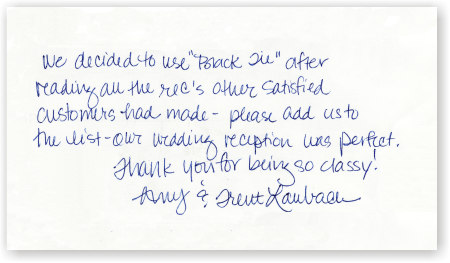 We decided to use "Black Tie" after
reading all the rec's other satisfied
customers had made - please add us to
the list - our wedding reception was perfect.
Thank you for being so classy!
Amy & Trent